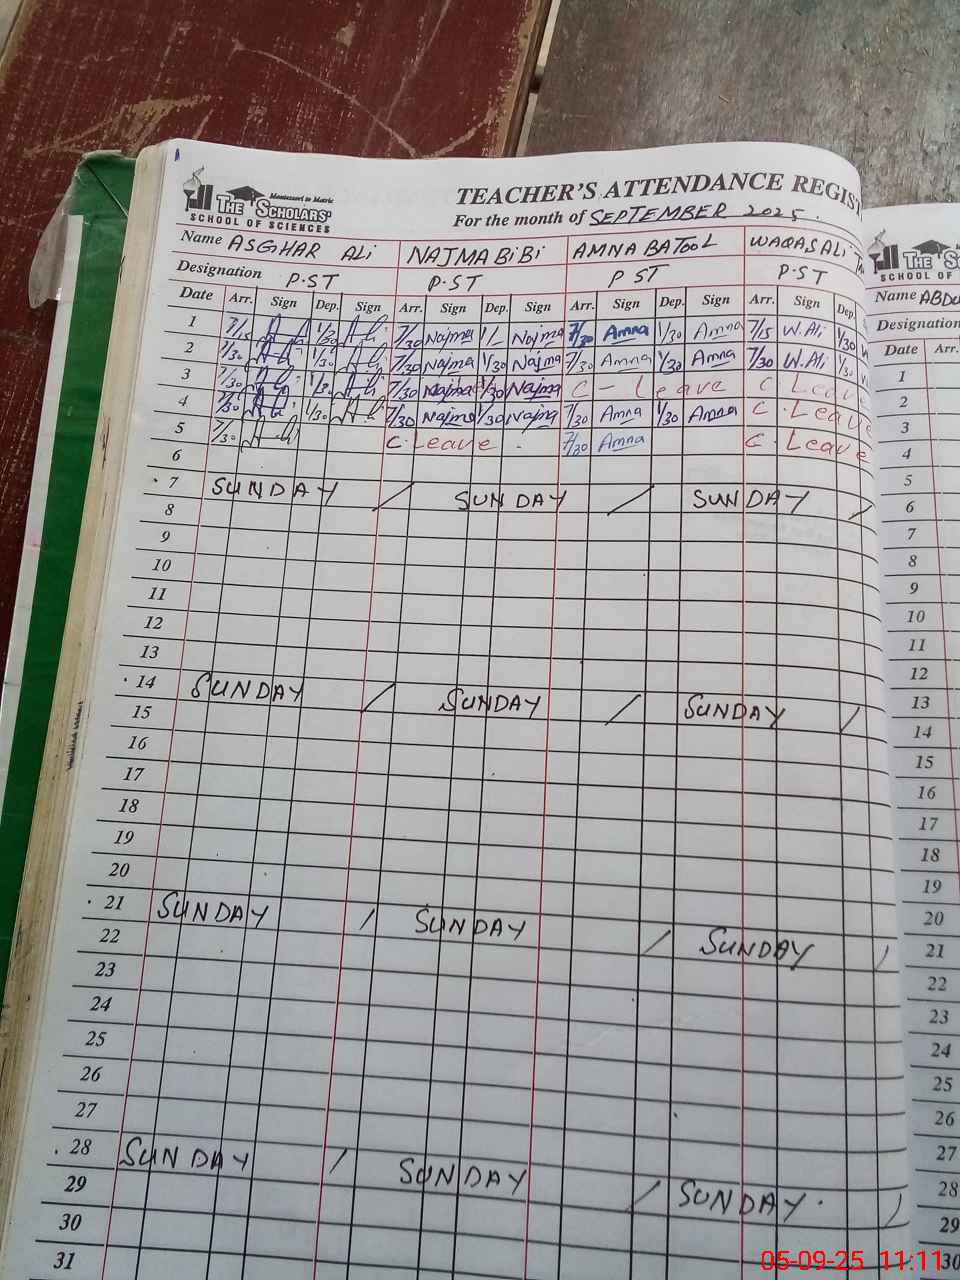 Montessori to Matric
THE SCHOLARS'
SCHOOL OF SCIENCES
TEACHER'S ATTENDANCE REGIS
For the month of SEPTEMBER 2025.
Name ASGHAR ALi NAJMA BiBi AMNA BATOOL WAQAS ALi
Designation P.ST P.ST P ST P.ST
Date Arr. Sign Dep. Sign Arr. Sign Dep. Sign Arr. Sign Dep. Sign Arr. Sign Dep.
1 7/15 1/30 7/30 Najma 1/ Najma 7/30 Amna 1/30 Amna 7/15 W.Ali 1/30
2 7/30 1/30 7/30 Najma 1/30 Najma 7/30 Amna 1/30 Amna 7/30 W.Ali 1/30
3 7/30 1/30 7/30 Najma 1/30 Najma C - Leave C Leave
4 7/30 1/30 7/30 Najma 1/30 Najma 7/30 Amna 1/30 Amna C. Leave
5 7/30 C. Leave 7/30 Amna C. Leave
6
7 SUNDAY / SUNDAY / SUNDAY /
8
9
10
11
12
13
14 SUNDAY / SUNDAY / SUNDAY /
15
16
17
18
19
20
21 SUNDAY / SUNDAY / SUNDAY /
22
23
24
25
26
27
28 SUNDAY / SUNDAY / SUNDAY /
29
30
31
THE SC
SCHOOL OF
Name ABDU
Designation
Date Arr.
1
2
3
4
5
6
7
8
9
10
11
12
13
14
15
16
17
18
19
20
21
22
23
24
25
26
27
28
29
30
05-09-25 11:11